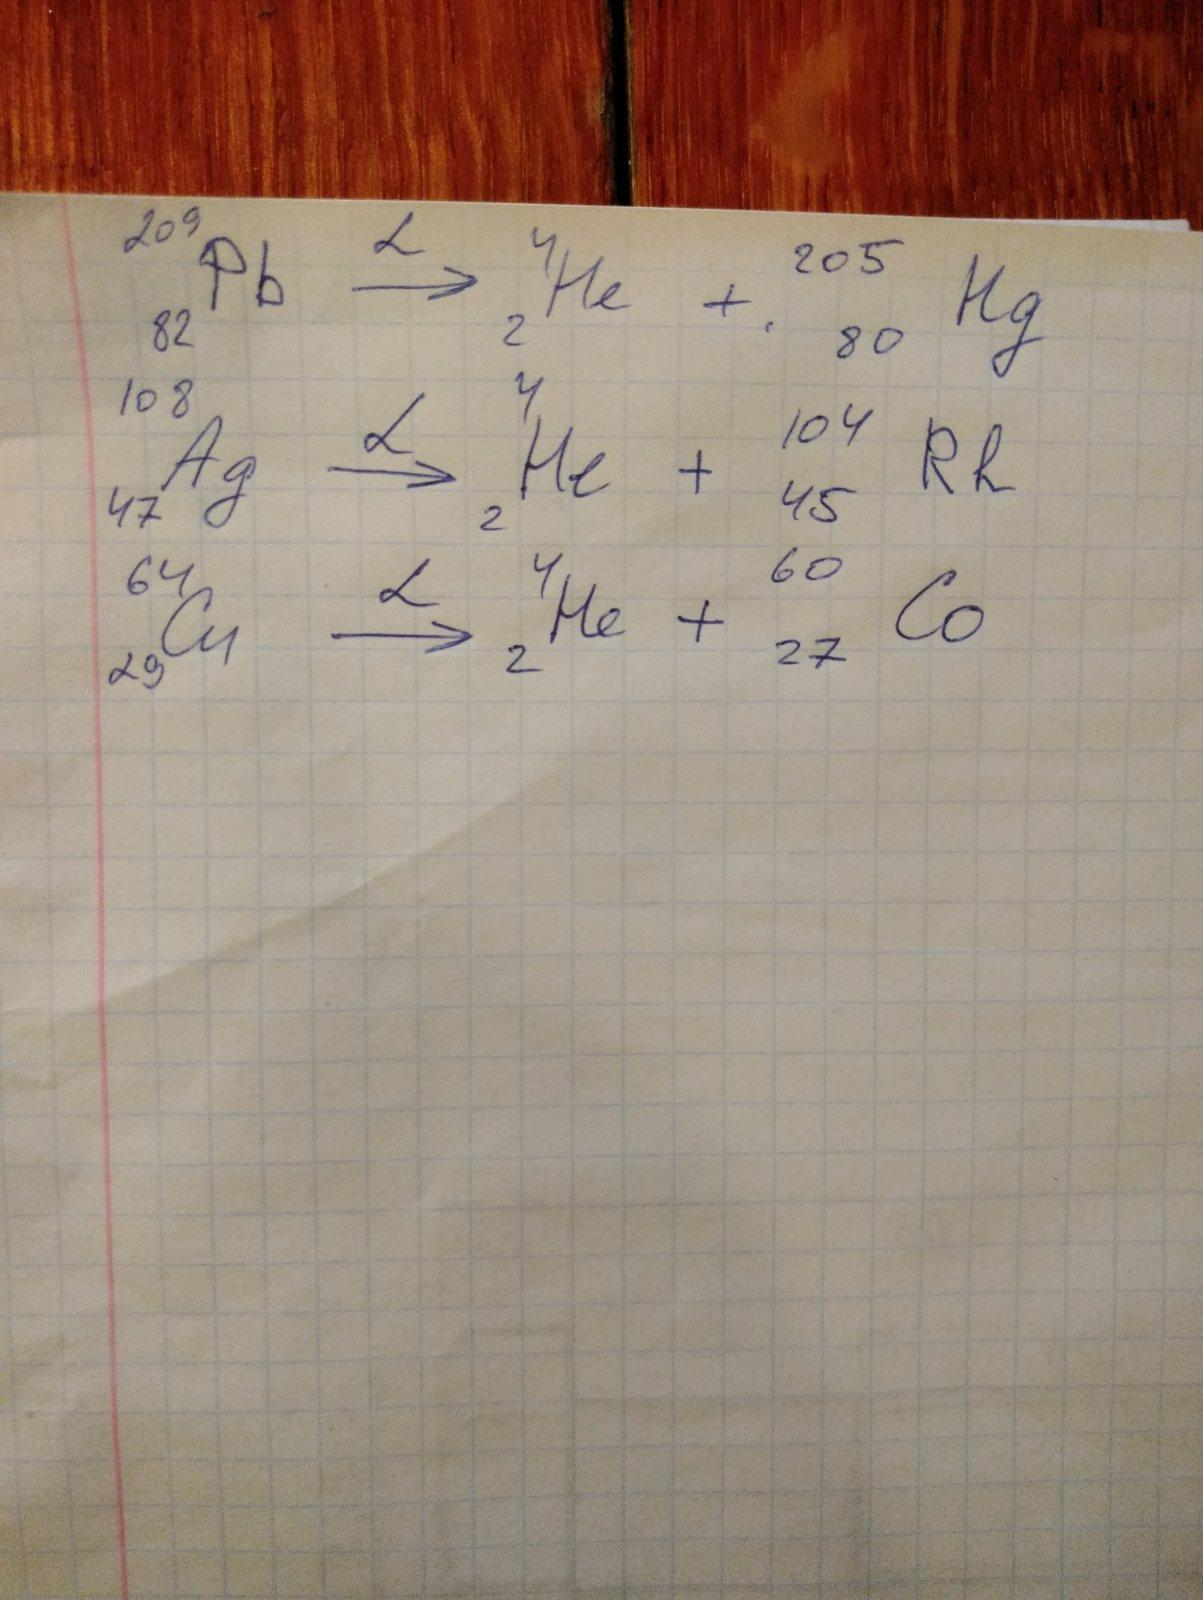 ²⁰⁹₈₂Pb —α→ ⁴₂He + ²⁰⁵₈₀Hg
¹⁰⁸₄₇Ag —α→ ⁴₂He + ¹⁰⁴₄₅Rh
⁶⁴₂₉Cu —α→ ⁴₂He + ⁶⁰₂₇Co